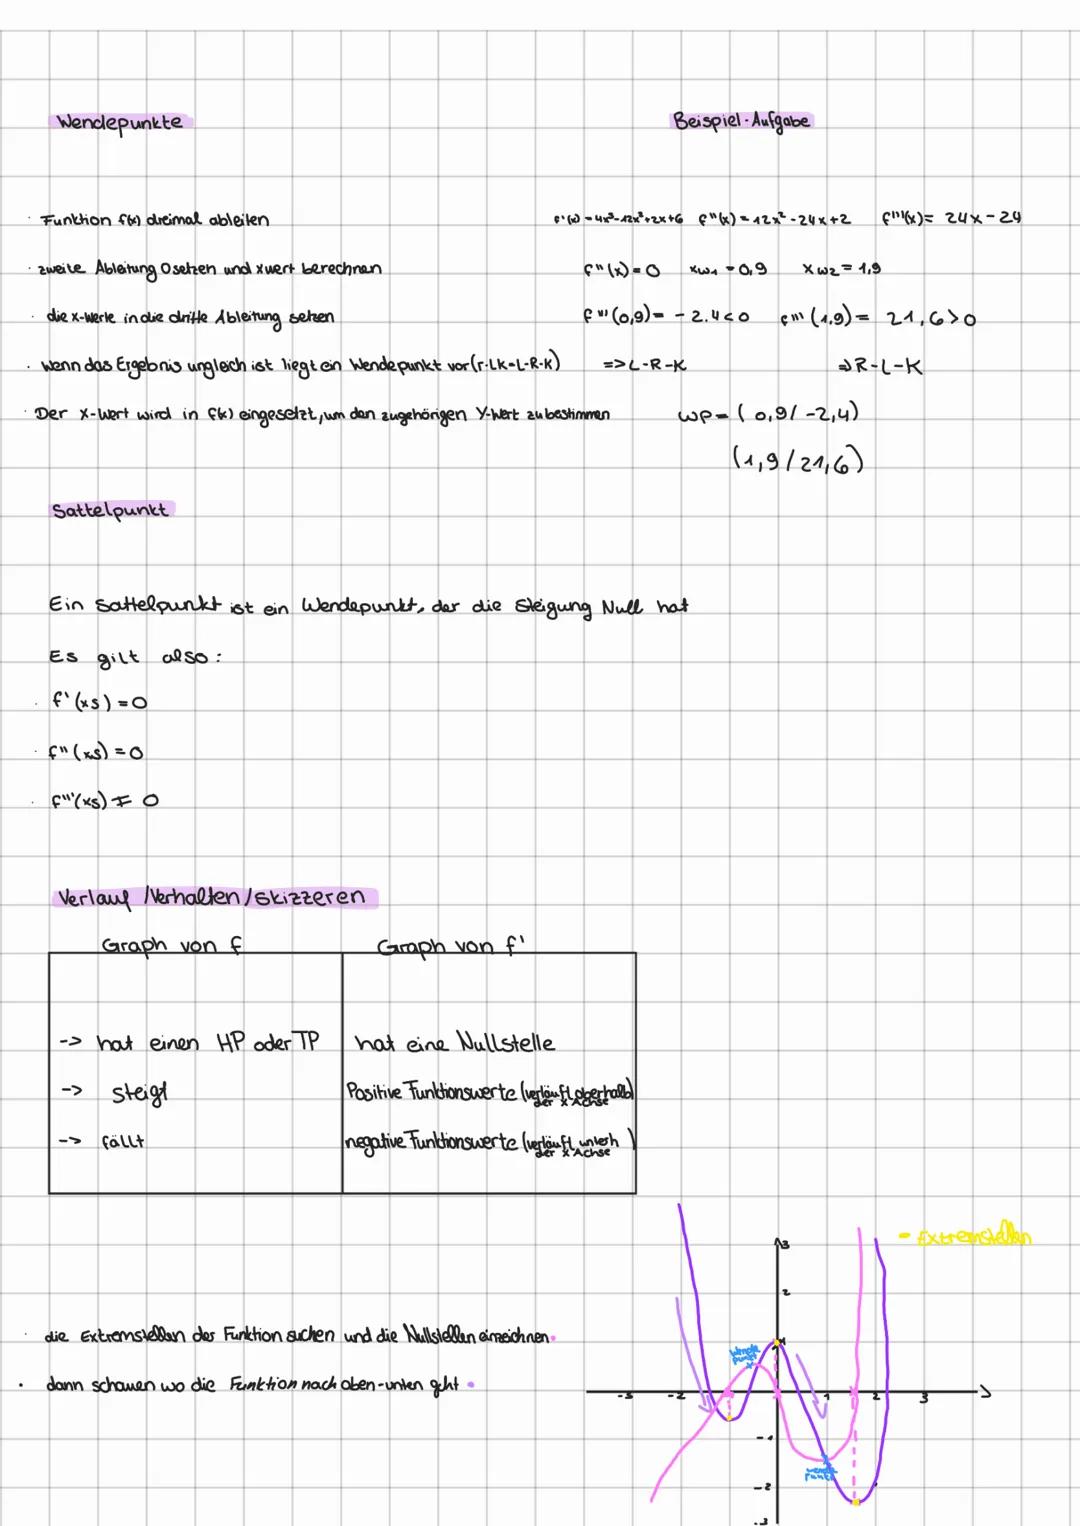 Wendepunkte
Beispiel-Aufgabe
· Funktion f(x) dreimal ableiten
f'(x) = 4x³-12x²+2x+6 f"(x) = 12x²-24x+2 f'''(x) = 24x-24
· zweite Ableitung 0 setzen und xwert berechnen
f"(x)=0 xw1 = 0,9 xw2 = 1,9
· die x-Werte in die dritte Ableitung setzen
f'''(0,9) = -2.4<0 f'''(1,9) = 21,6>0
· wenn das Ergebnis ungleich ist liegt ein Wendepunkt vor (r-Lk=L-R-K)
=> L-R-K => R-L-K
· Der x-Wert wird in f(x) eingesetzt, um den zugehörigen Y-Wert zu bestimmen
WP = (0,9/-2,4)
(1,9/21,6)
Sattelpunkt
Ein Sattelpunkt ist ein Wendepunkt, der die Steigung Null hat
Es gilt also:
· f'(xs) = 0
· f"(xs) = 0
· f'''(xs) ≠ 0
Verlauf/Verhalten/skizzeren
Graph von f Graph von f'
-> hat einen HP oder TP hat eine Nullstelle
-> steigt Positive Funktionswerte (verläuft oberhalb)
der x Achse
-> fällt negative Funktionswerte (verläuft unterh)
der x Achse
- Extremstellen
3
2
· die Extremstellen der Funktion suchen und die Nullstellen einzeichnen.
1
Wende
punkt
· dann schauen wo die Funktion nach oben-unten geht.
-3 -2 1 2 3
-1
wende
Punkt
-2
-3